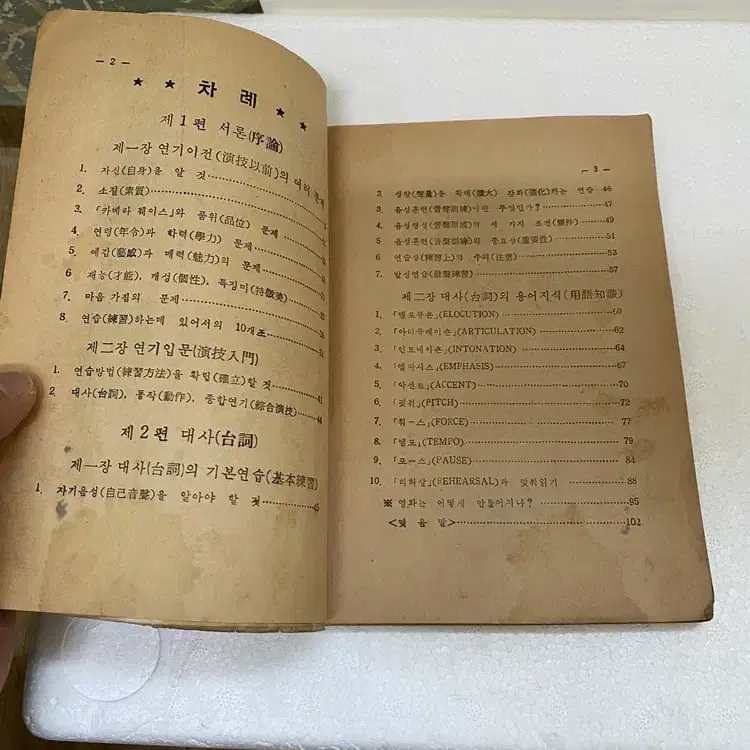 — 2 —
★ ★ 차 례 ★ ★
제 1 편 서론(序論)
제一장 연기이전(演技以前)의 여러 문제
1. 자신(自身)을 알 것
2. 소질(素質)
3. 「캬메라 훼이스」와 품위(品位) 문제
4. 연령(年令)과 학력(學力) 문제
5. 예감(藝感)과 매력(魅力)의 문제
6 재능(才能), 개성(個性), 특징미(特徵美)
7. 마음 가짐의 문제
8. 연습(練習)하는데 있어서의 10개조
제二장 연기입문(演技入門)
1. 연습방법(練習方法)을 확립(確立)할 것 41
2. 대사(台詞), 동작(動作), 종합연기(綜合演技) 44
제 2 편 대사(台詞)
제一장 대사(台詞)의 기본연습(基本練習)
1. 자기음성(自己音聲)을 알아야 할 것 45
— 3 —
2. 성량(聲量)을 확대(擴大) 강화(强化)하는 연습 46
3. 음성훈련(音聲訓練)이란 무엇인가? 47
4. 음성형성(音聲形成)의 세 가지 조건(條件) 49
5 음성훈련(音聲訓練)의 중요성(重要性) 51
6 연습상(練習上)의 주의(注意) 53
7. 발성연습(發聲練習) 57
제二장 대사(台詞)의 용어지식(用語知識)
1. 「엘로큐숀」(ELOCUTION) 60
2. 「아티큐레이숀」(ARTICULATION) 62
3. 「인토네이숀」(INTONATION) 64
4. 「엠파시스」(EMPHASIS) 67
5. 「악센트」(ACCENT) 70
6. 「핏취」(PITCH) 72
7. 「훠ㅡ스」(FORCE) 77
8. 「템포」(TEMPO) 79
9. 「포ㅡ스」(PAUSE) 84
10. 「리허살」(REHEARSAL)과 맞취읽기 88
※ 영화는 어떻게 만들어지나? 95
<맺 음 말> 102